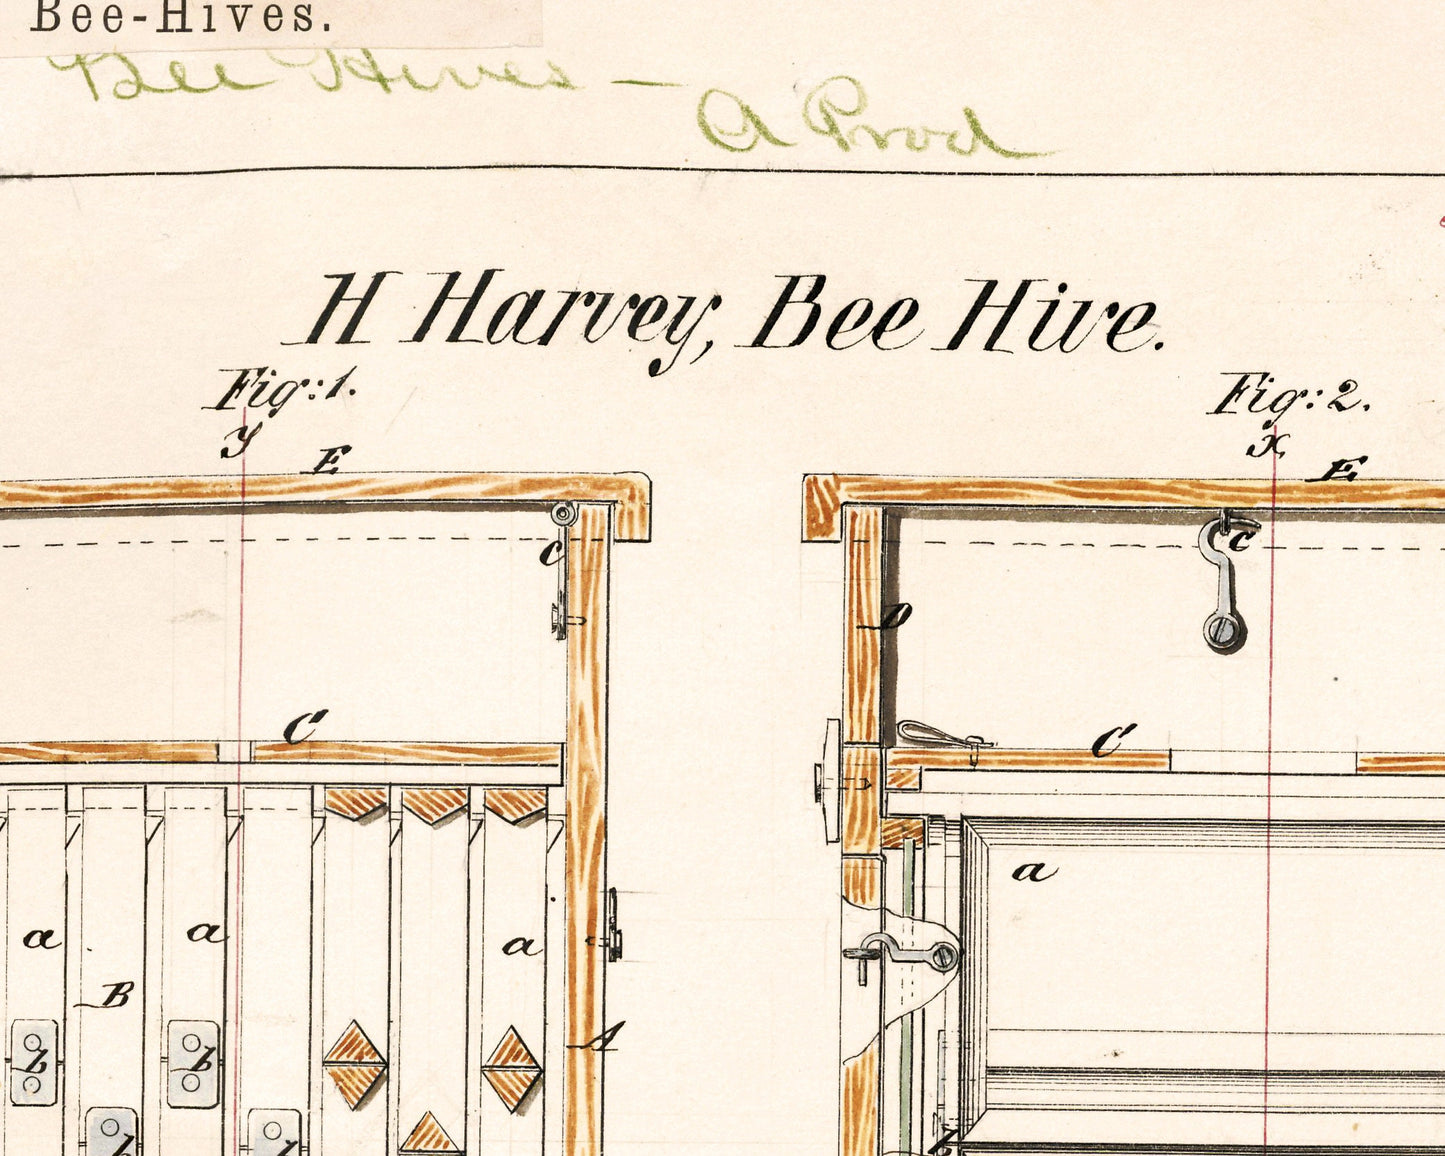 Bee-Hives.
Bee Hives —
A Prod
H Harvey, Bee Hive.
Fig:1.
Fig:2.
y
x
E
E
c
c
D
C
C
a
a
a
a
B
A
b
b
b
b
b